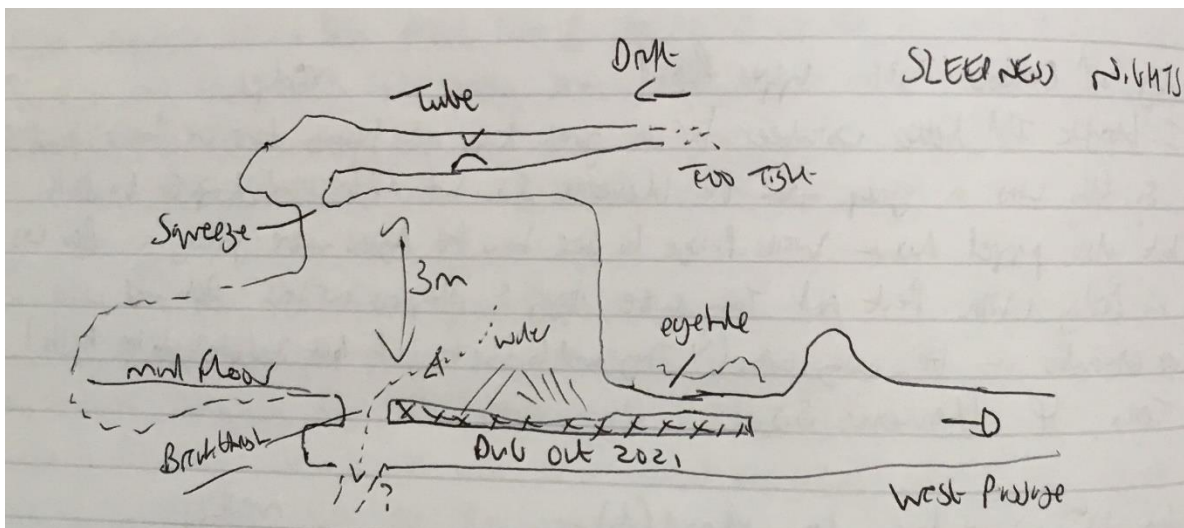 Draft
SLEEPNESS NIGHTS
Tube
Too Tight
Squeeze
3m
eyehole
mud floor
Dug out 2021
West Passage
?